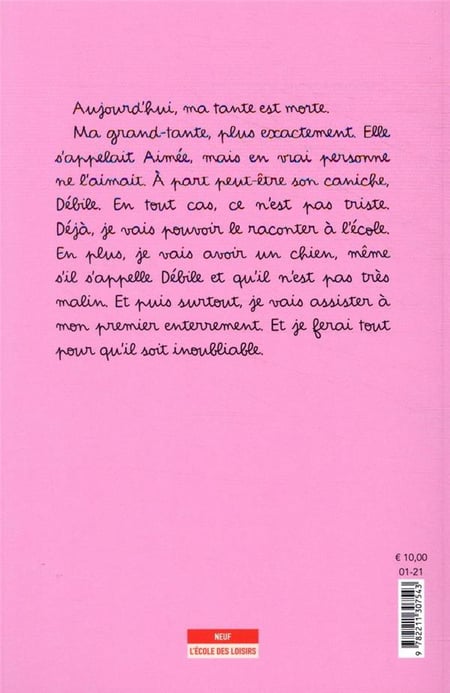 Aujourd'hui, ma tante est morte.
Ma grand-tante, plus exactement. Elle
s'appelait Aimée, mais en vrai personne
ne l'aimait. À part peut-être son caniche,
Débile. En tout cas, ce n'est pas triste.
Déjà, je vais pouvoir le raconter à l'école.
En plus, je vais avoir un chien, même
s'il s'appelle Débile et qu'il n'est pas très
malin. Et puis surtout, je vais assister à
mon premier enterrement. Et je ferai tout
pour qu'il soit inoubliable.
€ 10,00
01-21
9 782211 307543
NEUF
L'ÉCOLE DES LOISIRS